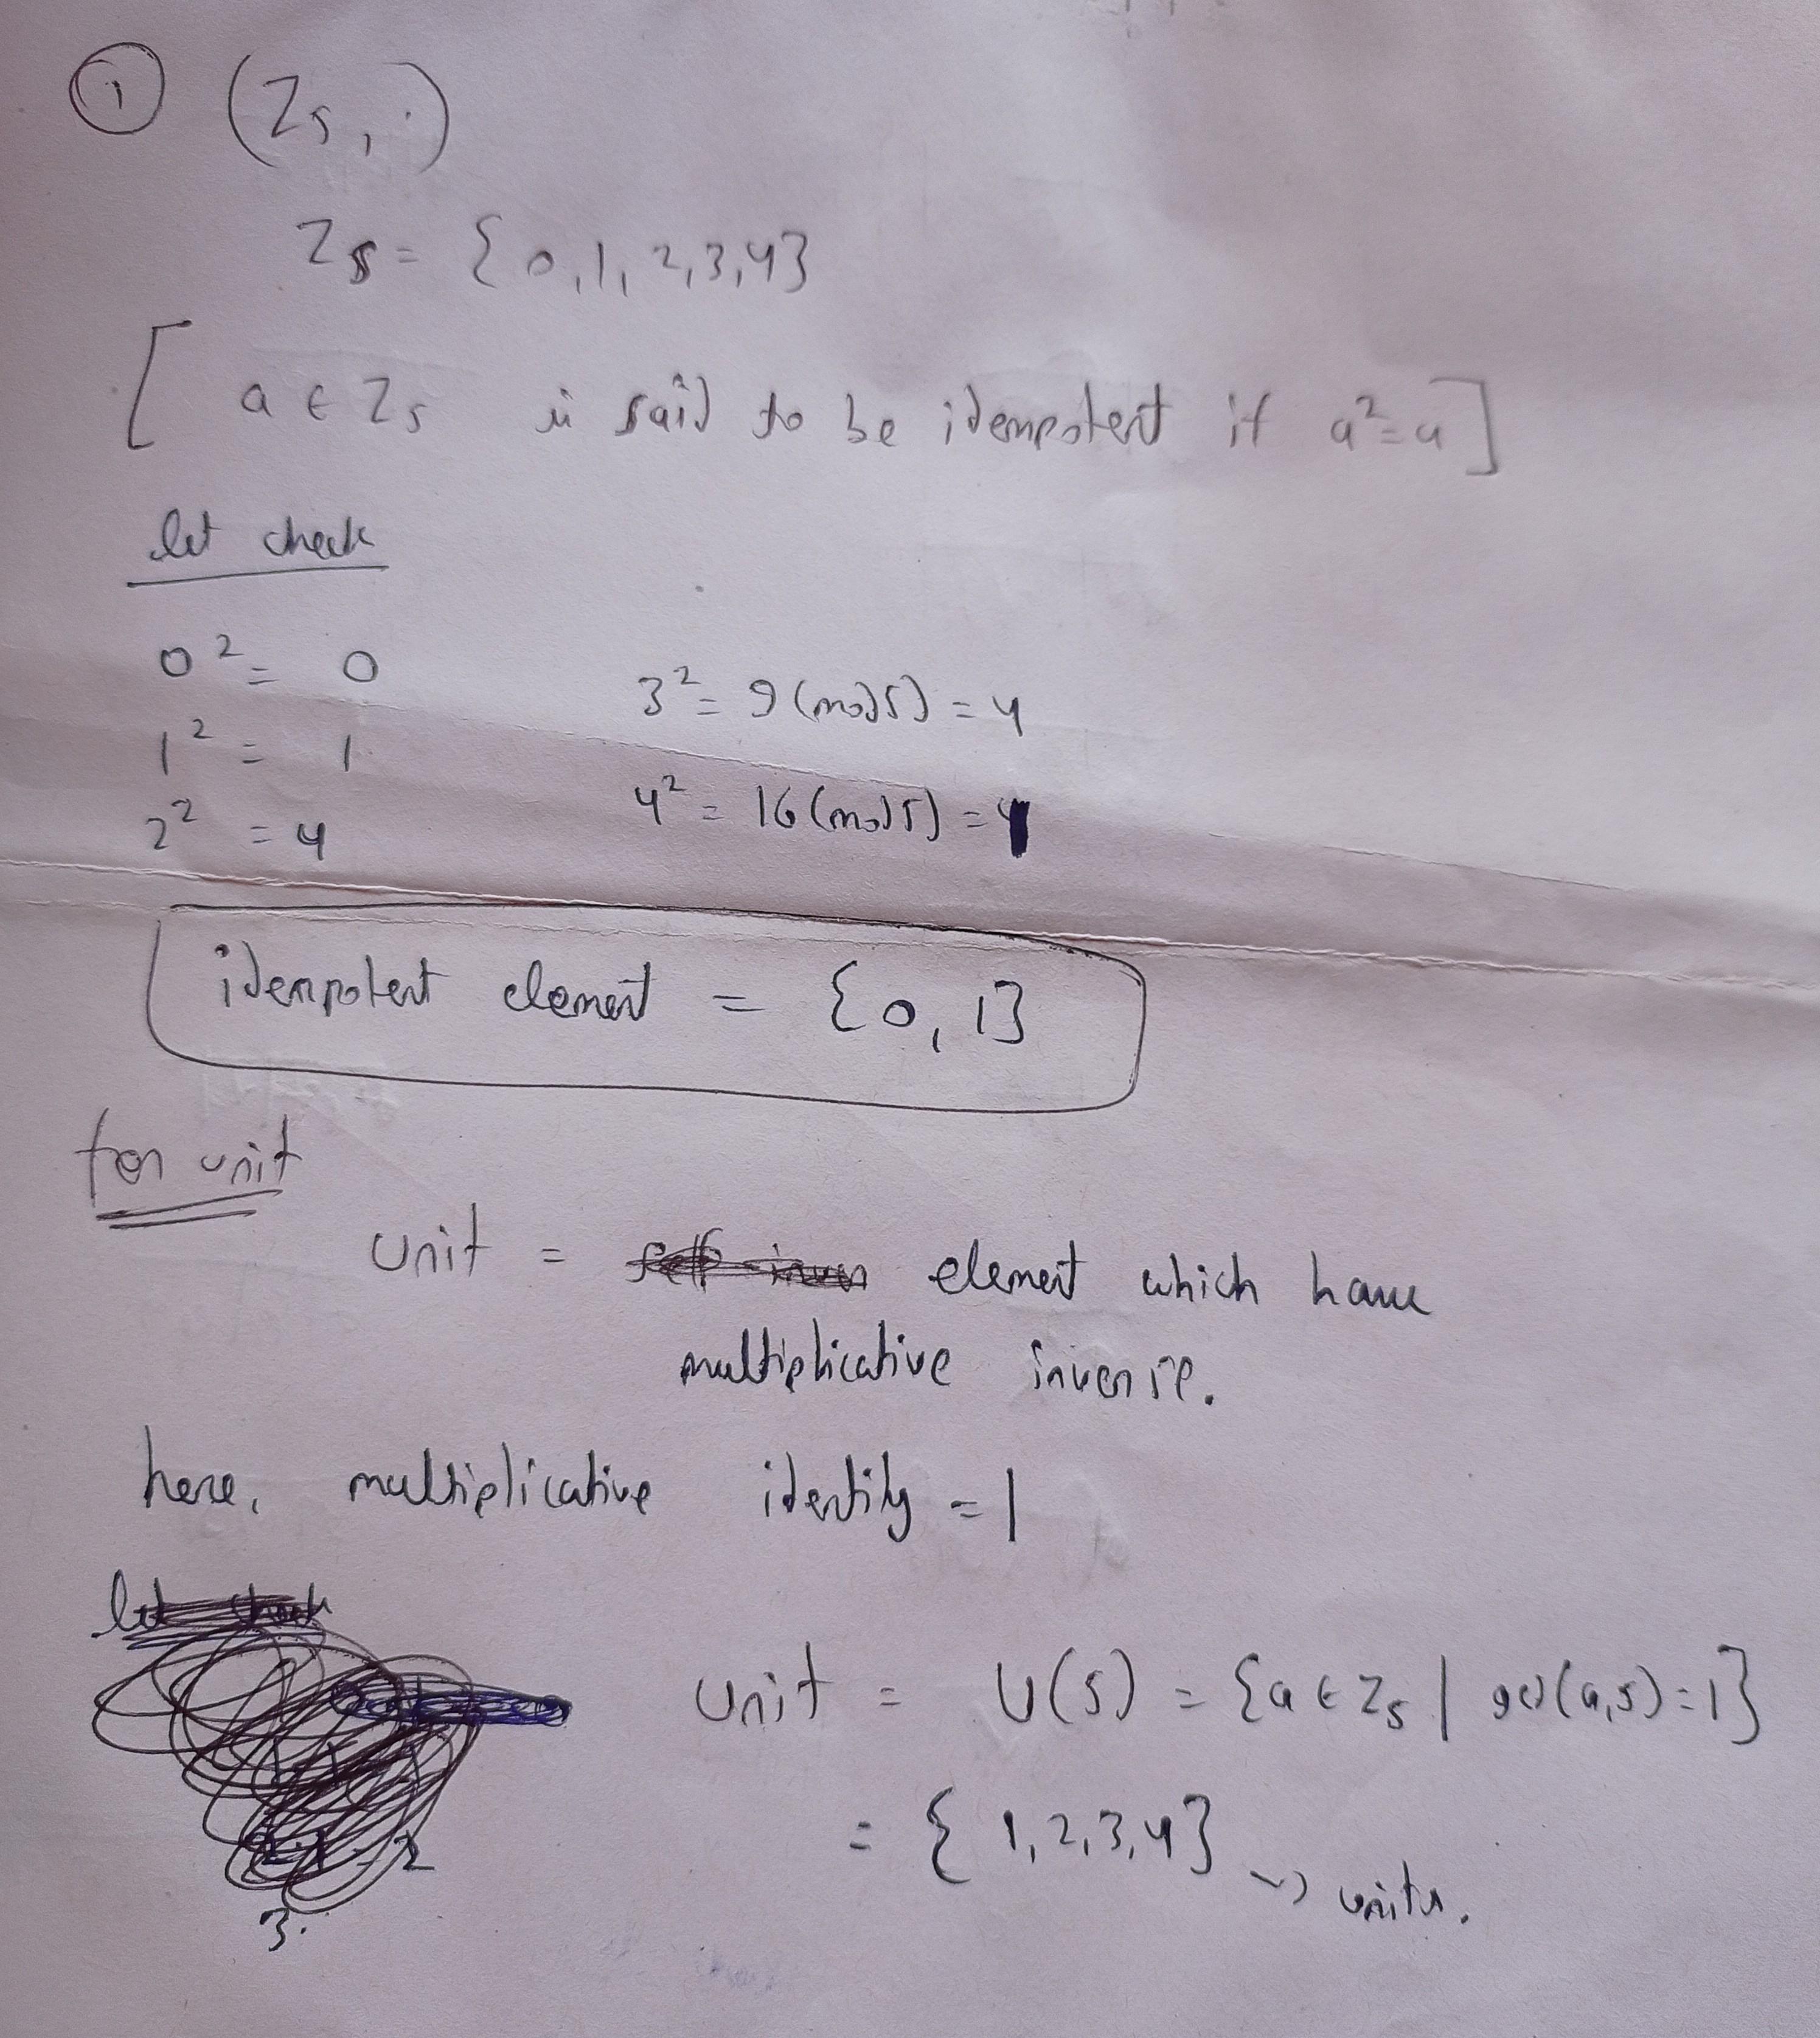 ① (Z₅, ·)
Z₅ = {0, 1, 2, 3, 4}
[ a ∈ Z₅ is said to be idempotent if a² = a ]
let check
0² = 0
1² = 1
2² = 4
3² = 9 (mod 5) = 4
4² = 16 (mod 5) = 1
idempotent element = {0, 1}
for unit
unit = element which have
multiplicative inverse.
here, multiplicative identity = 1
unit = U(5) = {a ∈ Z₅ | gcd(a, 5) = 1}
= {1, 2, 3, 4} → units.
3.